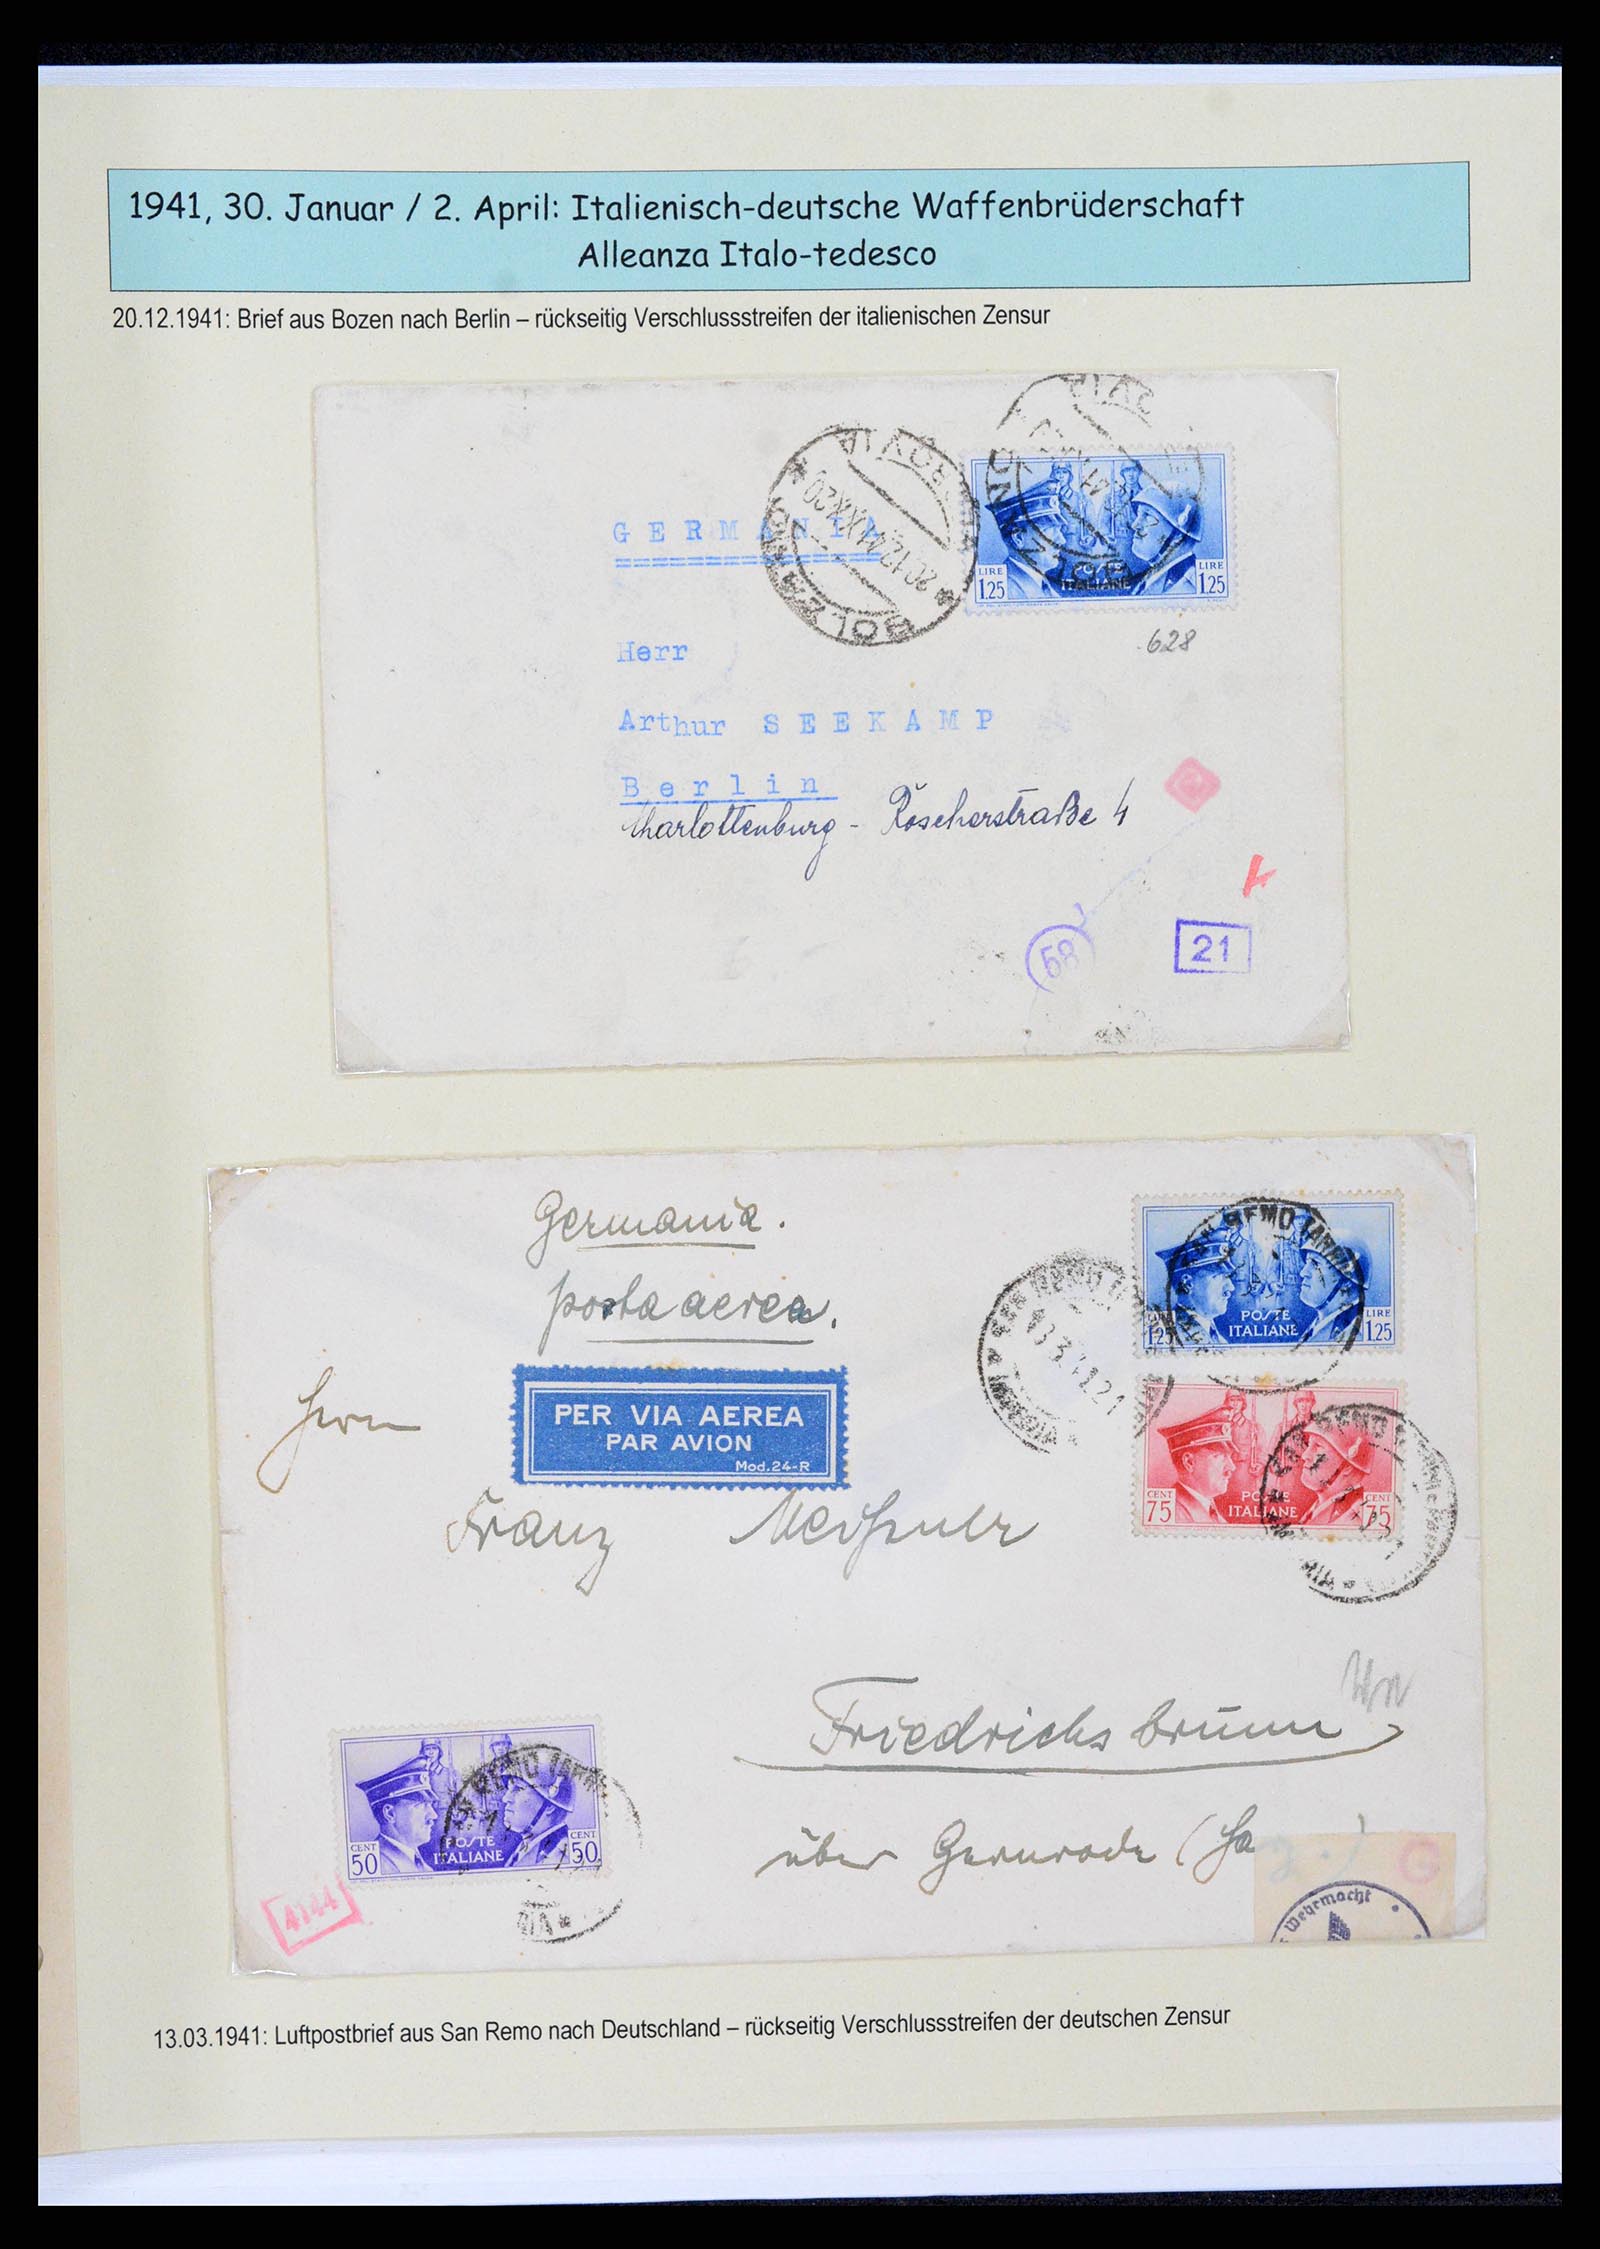 1941, 30. Januar / 2. April: Italienisch-deutsche Waffenbrüderschaft
Alleanza Italo-tedesco
20.12.1941: Brief aus Bozen nach Berlin – rückseitig Verschlussstreifen der italienischen Zensur
GERMANIA
20.12.41.XX 20
BOLZANO
LIRE 1,25
POSTE ITALIANE
LIRE 1,25
628
Herr
Arthur SEEKAMP
Berlin
Charlottenburg - Röscherstraße 4
58
21
Germania.
posta aerea.
PER VIA AEREA
PAR AVION
Mod.24-R
Herrn
Franz Meißner
SAN REMO
13.3.41.21
1,25
POSTE ITALIANE
LIRE 1,25
SAN REMO
CENT 75
POSTE ITALIANE
CENT 75
SAN REMO
Friedrichsbrunn
über Gernrode (Ha
CENT 50
POSTE ITALIANE
CENT 50
SAN REMO
4144
G
Wehrmacht
13.03.1941: Luftpostbrief aus San Remo nach Deutschland – rückseitig Verschlussstreifen der deutschen Zensur